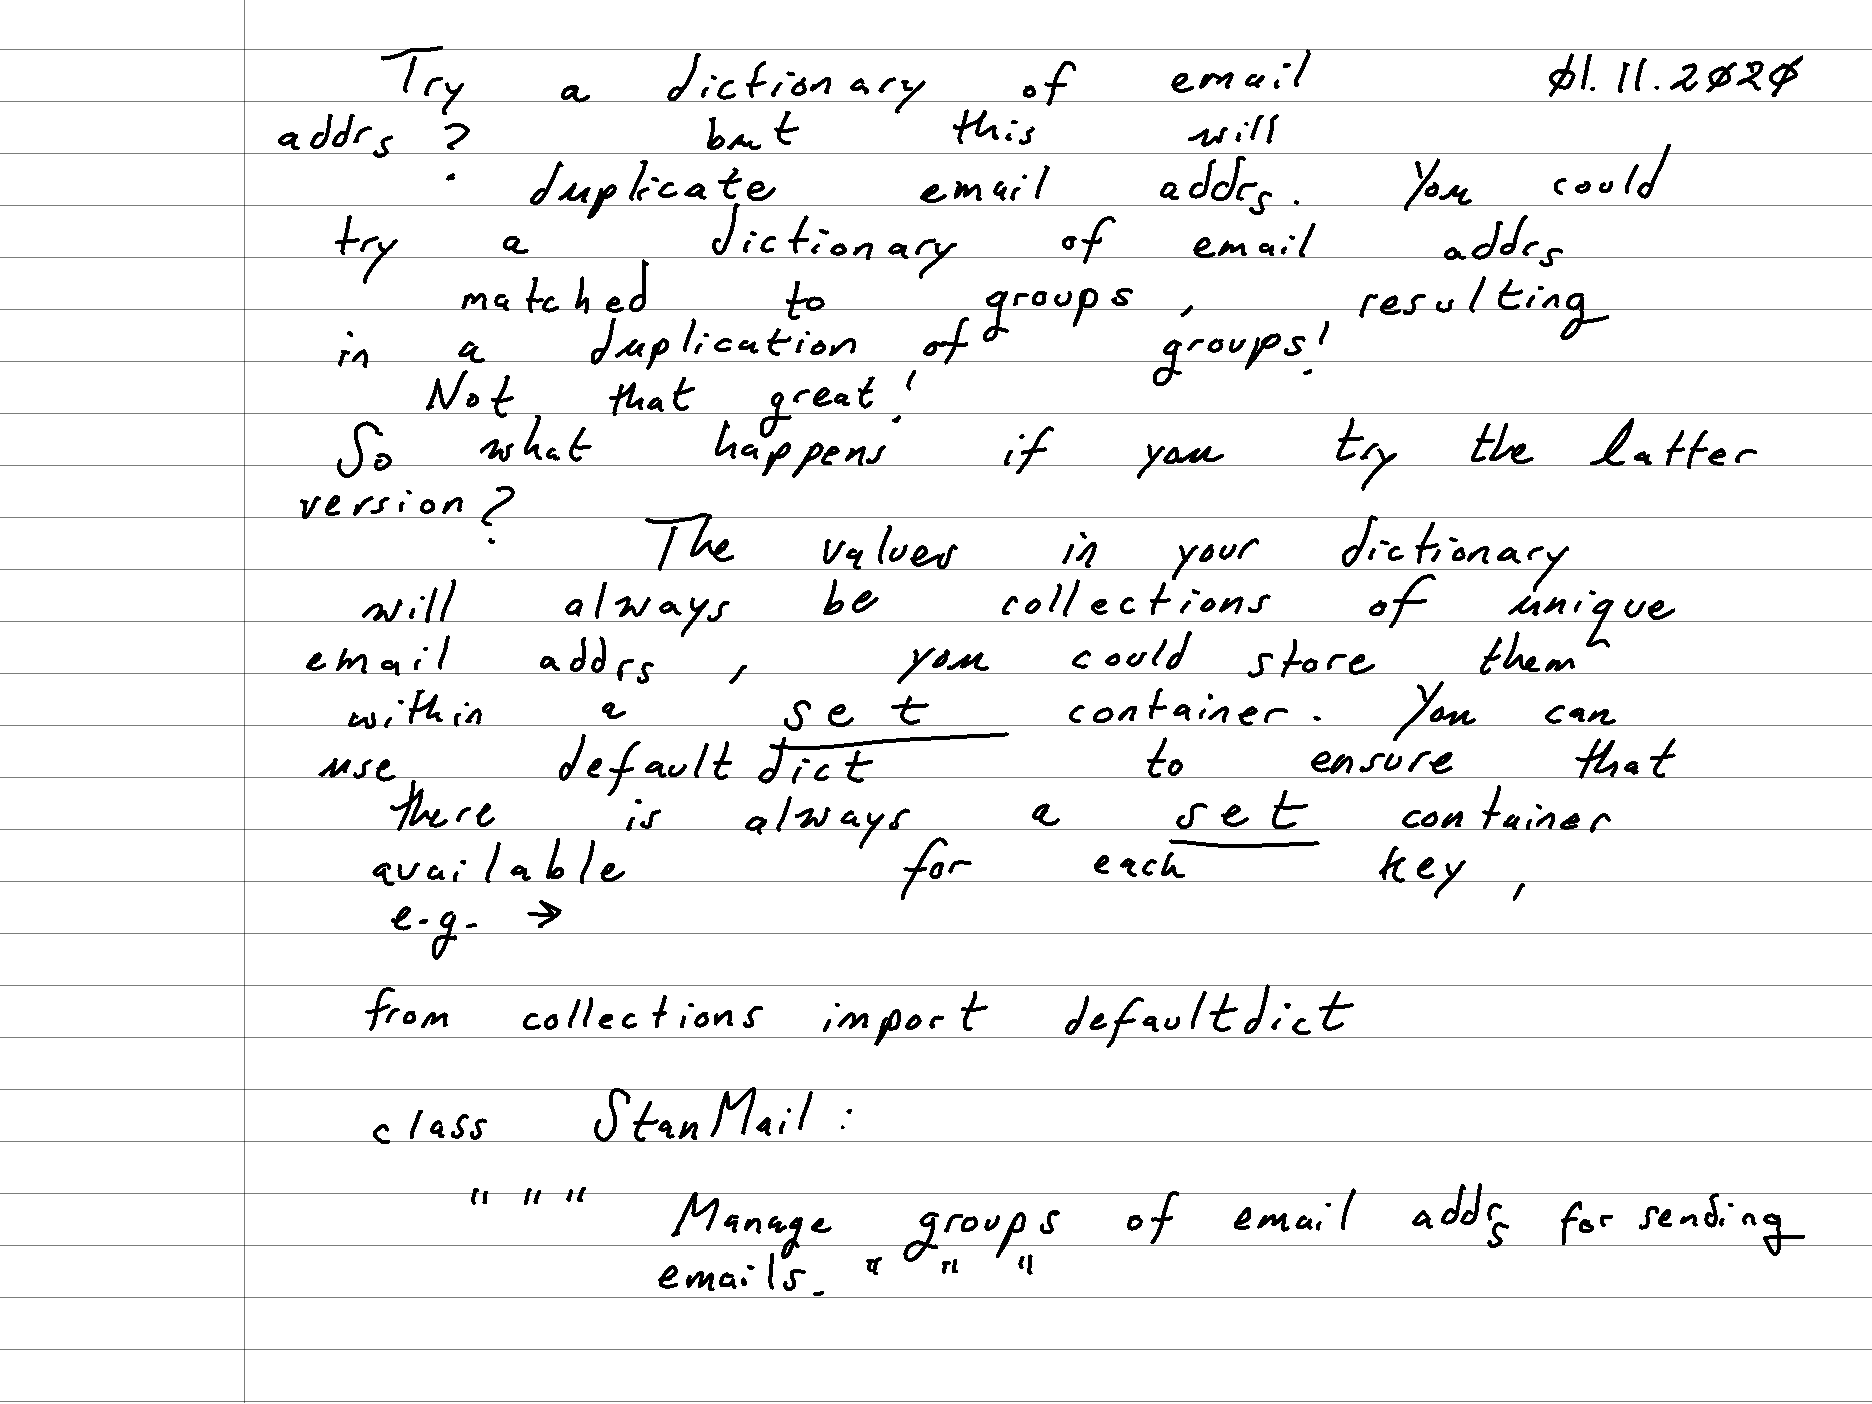 Try a dictionary of email 01.11.2020
addrs? but this will
duplicate email addrs. You could
try a dictionary of email addrs
matched to groups, resulting
in a duplication of groups!
Not that great!
So what happens if you try the latter
version?
The values in your dictionary
will always be collections of unique
email addrs, you could store them
within a set container. You can
use defaultdict to ensure that
there is always a set container
available for each key,
e.g. →
from collections import defaultdict
class StanMail:
""" Manage groups of email addrs for sending
emails. """